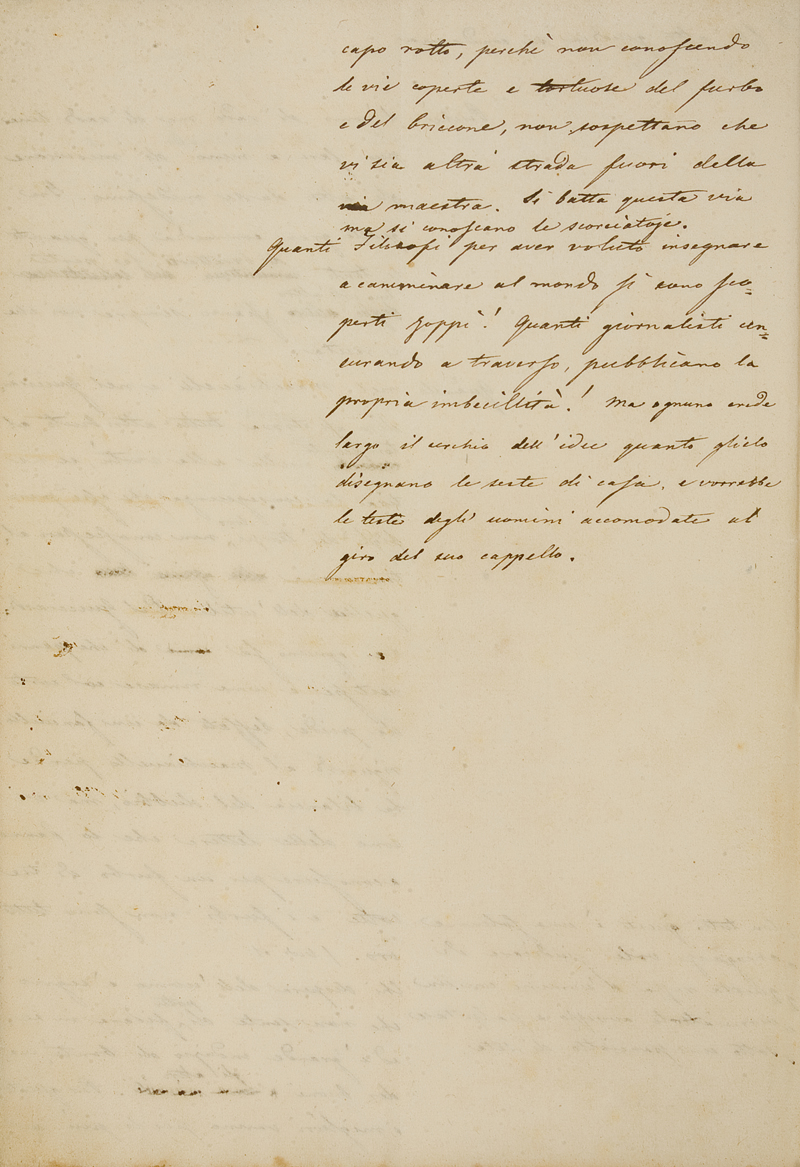 capo rotto, perchè non conoscendo
le vie coperte e tortuose del furbo
e del briccone, non sospettano che
vi sia altra strada fuori della
via maestra. Si batta questa via
ma si conoscano le scorciatoje.
Quanti Filosofi per aver voluto insegnare
a camminare al mondo si sono sco=
perti zoppi! Quanti giornalisti cen=
surando a traverso, pubblicano la
propria imbecillità! Ma ognuno crede
largo il cerchio dell'idee quanto glielo
disegnano le seste di casa, e vorrebbe
le teste degli uomini accomodate al
giro del suo cappello.